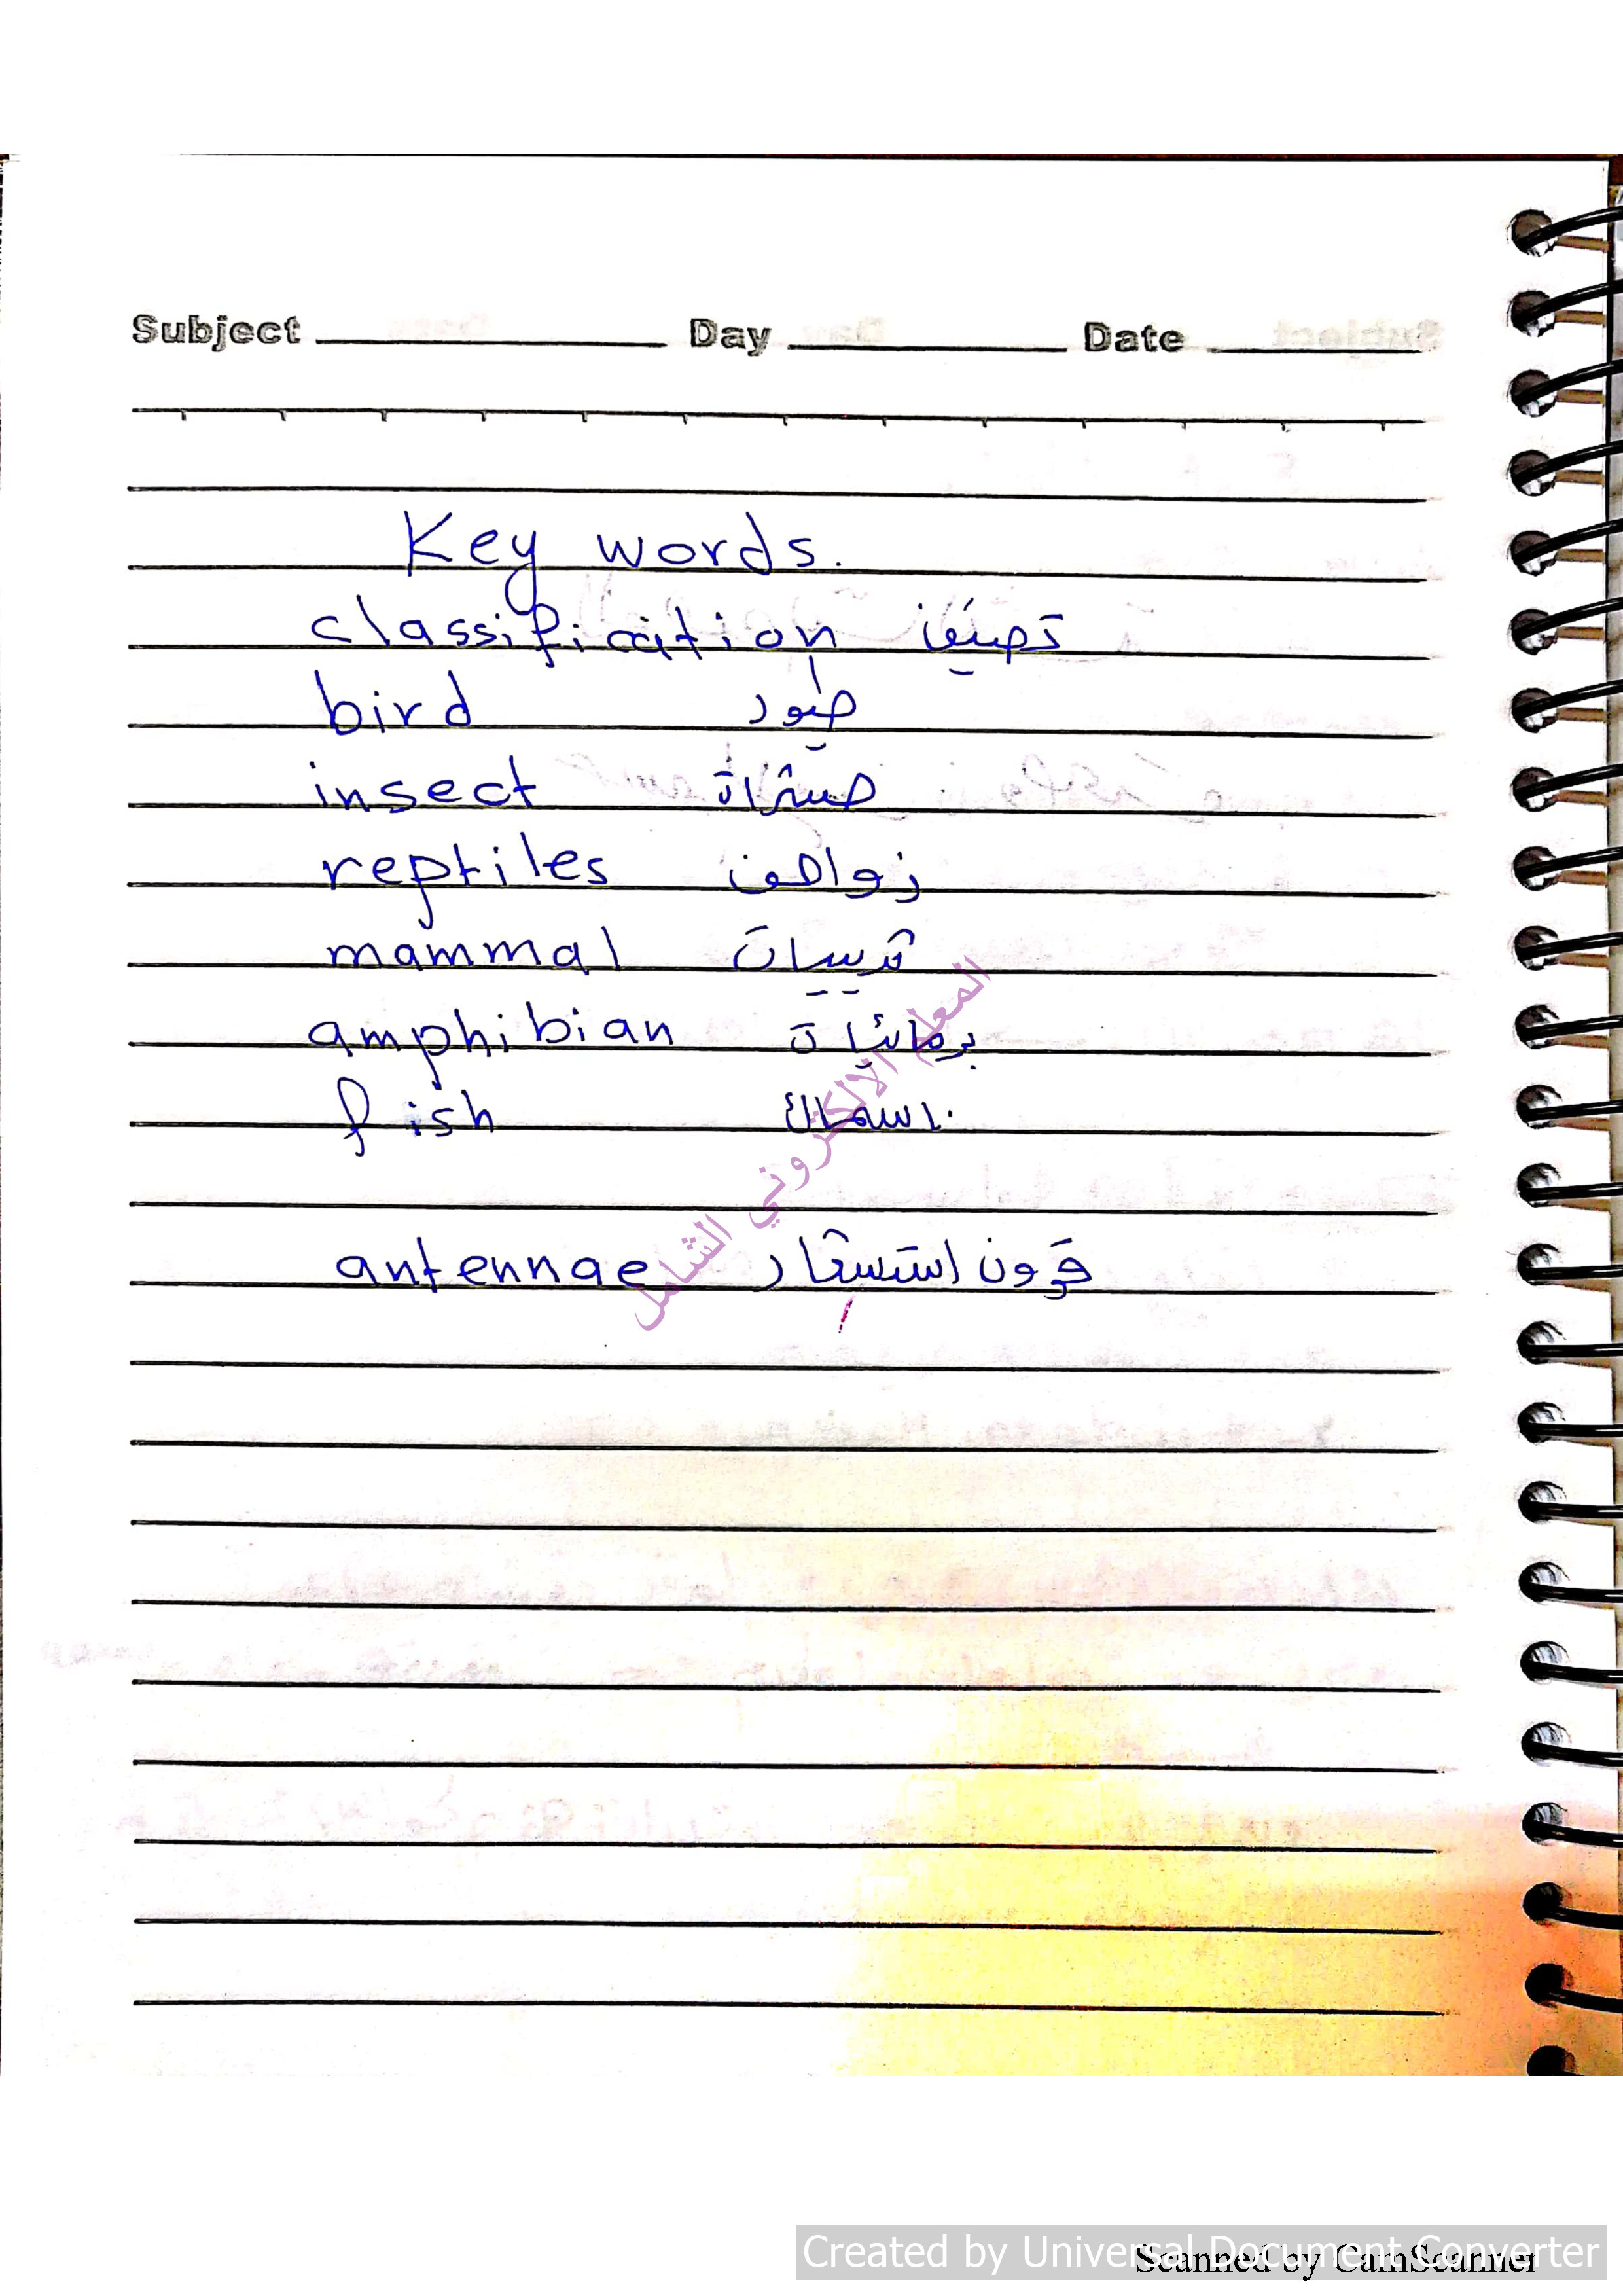 Subject Day Date
Key words.
classification تصنيف
bird طيور
insect حشراة
reptiles زواحف
mammal ثدييات
amphibian برمائيات
fish اسماك
antennae قرون استشعار
المعلم الالكتروني الشامل
Created by Universal Document Converter
Scanned by CamScanner